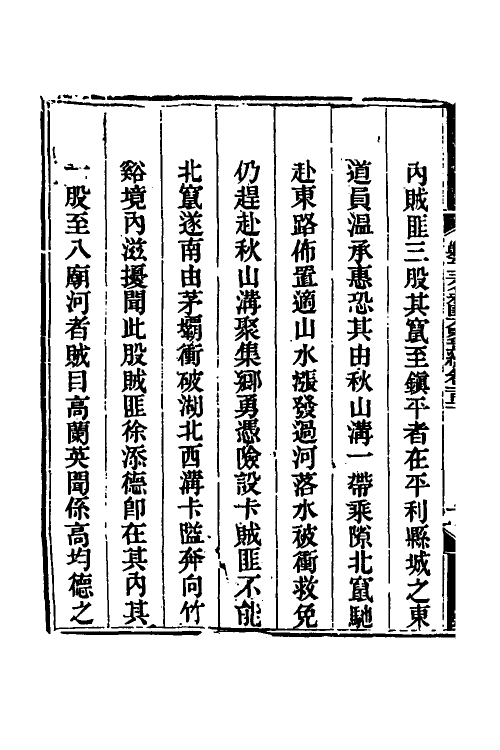 內賊匪三股其竄至鎮平者在平利縣城之東
道員溫承惠恐其由秋山溝一帶乘隙北竄馳
赴東路佈置適山水漲發過河落水被衝救免
仍趕赴秋山溝聚集鄉勇憑險設卡賊匪不能
北竄遂南由茅壩衝破湖北西溝卡隘奔向竹
谿境內滋擾聞此股賊匪徐添德卽在其內其
一股至八廟河者賊目高蘭英聞係高均德之